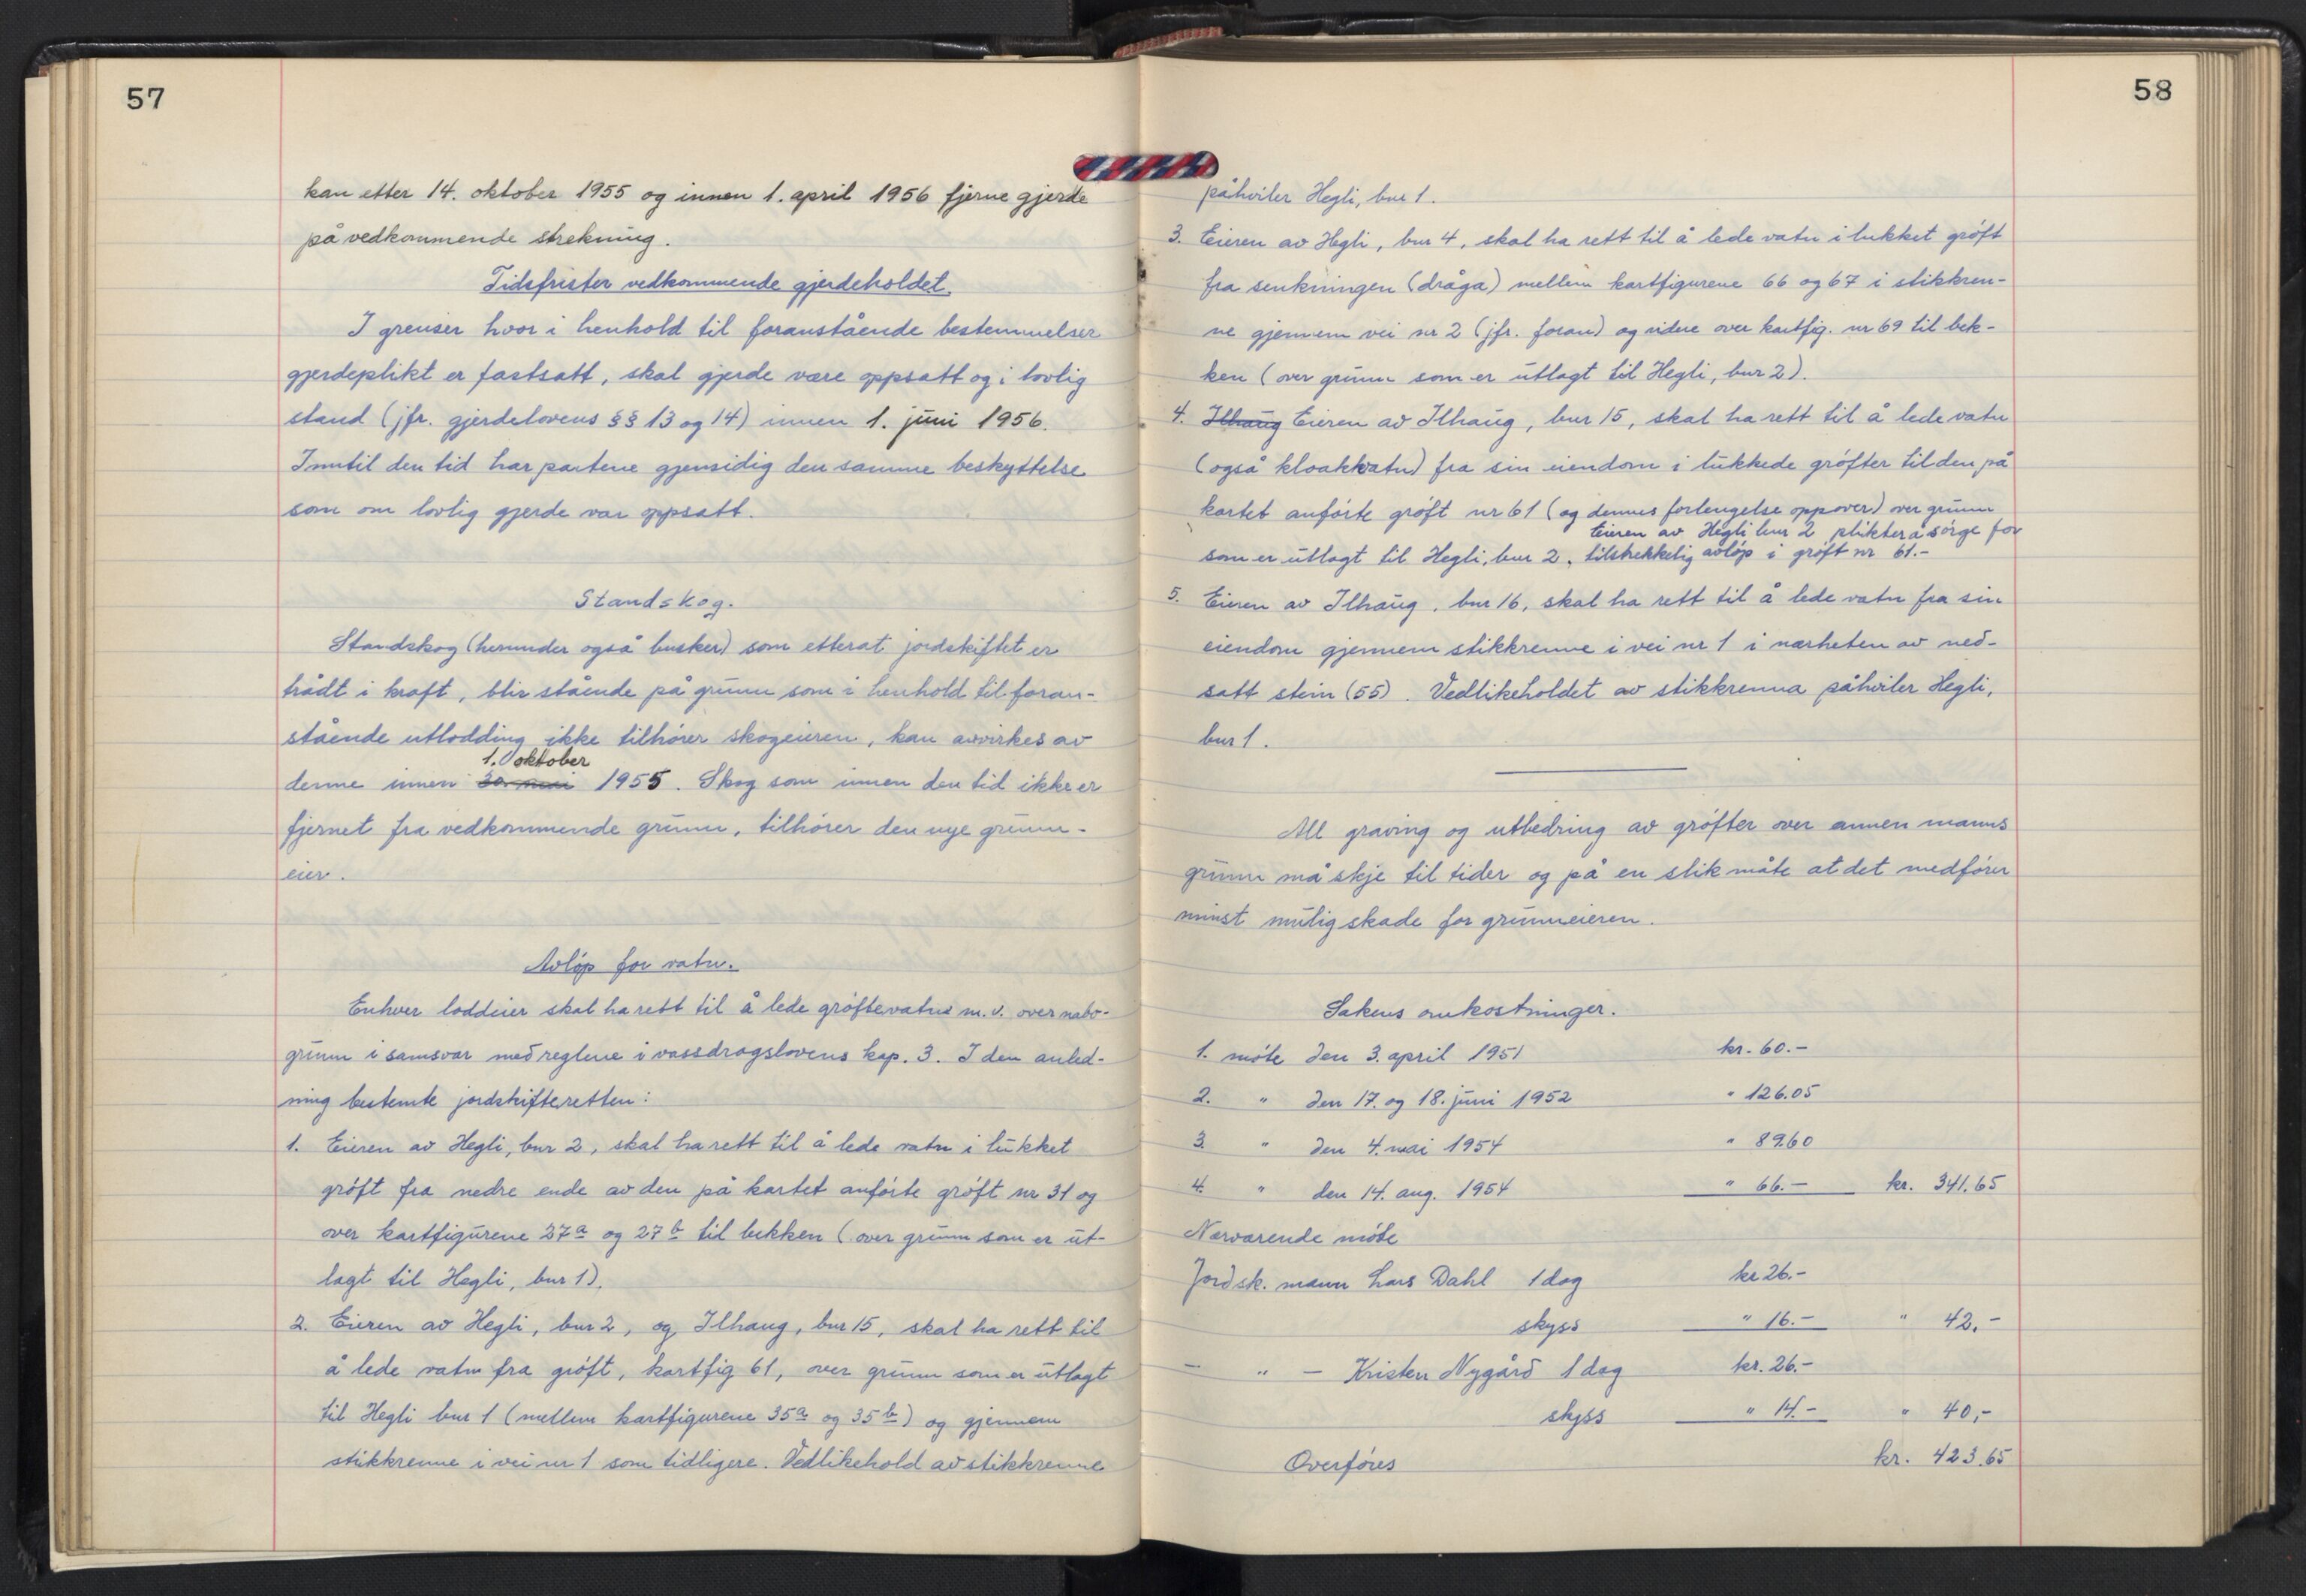 57
kan etter 14. oktober 1955 og innen 1. april 1956 fjerne gjerde
på vedkommende strekning.
Tidsfrister vedkommende gjerdeholdet.
I grenser hvor i henhold til foranstående bestemmelser
gjerdeplikt er fastsatt, skal gjerde være oppsatt og i lovlig
stand (jfr. gjerdelovens §§ 13 og 14) innen 1. juni 1956.
Inntil den tid har partene gjensidig den samme beskyttelse
som om lovlig gjerde var oppsatt.
Standskog.
Standskog (herunder også busker) som etterat jordskiftet er
trådt i kraft, blir stående på grunn som i henhold til foran-
stående utlodding ikke tilhører skogeieren, kan avvirkes av
1. oktober
denne innen 30. mai 1955. Skog som innen den tid ikke er
fjernet fra vedkommende grunn, tilhører den nye grunn-
eier.
Avløp for vatn.
Enhver loddeier skal ha rett til å lede grøftevatn m.v. over nabo-
grunn i samsvar med reglene i vassdragslovens kap. 3. I den anled-
ning bestemte jordskifteretten:
1. Eieren av Hegli, bnr 2, skal ha rett til å lede vatn i lukket
grøft fra nedre ende av den på kartet anførte grøft nr 31 og
over kartfigurene 27a og 27b til bekken (over grunn som er ut-
lagt til Hegli, bnr 1).
2. Eieren av Hegli, bnr 2, og Ilhaug, bnr 15, skal ha rett til
å lede vatn fra grøft, kartfig 61, over grunn som er utlagt
til Hegli bnr 1 (mellem kartfigurene 35a og 35b) og gjennem
stikkrenne i vei nr 1 som tidligere. Vedlikehold av stikkrenne
58
påhviler Hegli, bnr 1.
3. Eieren av Hegli, bnr 4, skal ha rett til å lede vatn i lukket grøft
fra senkningen (dråga) mellem kartfigurene 66 og 67 i stikkren-
ne gjennem vei nr 2 (jfr. foran) og videre over kartfig. nr 69 til bek-
ken (over grunn som er utlagt til Hegli, bnr 2).
4. Ilhaug Eieren av Ilhaug, bnr 15, skal ha rett til å lede vatn
(også kloakkvatn) fra sin eiendom i lukkede grøfter til den på
kartet anførte grøft nr 61 (og dennes forlengelse oppover) over grunn
Eieren av Hegli bnr 2 plikter å sørge for
som er utlagt til Hegli, bnr 2. tilstrekkelig avløp i grøft nr 61.-
5. Eieren av Ilhaug, bnr 16, skal ha rett til å lede vatn fra sin
eiendom gjennem stikkrenne i vei nr 1 i nærheten av ned-
satt stein (55). Vedlikeholdet av stikkrenna påhviler Hegli,
bnr 1.
All graving og utbedring av grøfter over annen manns
grunn må skje til tider og på en slik måte at det medfører
minst mulig skade for grunneieren.
Sakens omkostninger.
1. møte den 3. april 1951 kr. 60.-
2. " den 17. og 18. juni 1952 " 126.05
3. " den 4. mai 1954 " 89.60
4. " den 14. aug. 1954 " 66.- kr. 341.65
Nærværende møte
Jordsk. mann Lars Dahl 1 dag kr 26.-
skyss " 16.- " 42,-
- " - Kristen Nygård 1 dag kr. 26.-
skyss " 14.- " 40,-
Overføres kr. 423.65